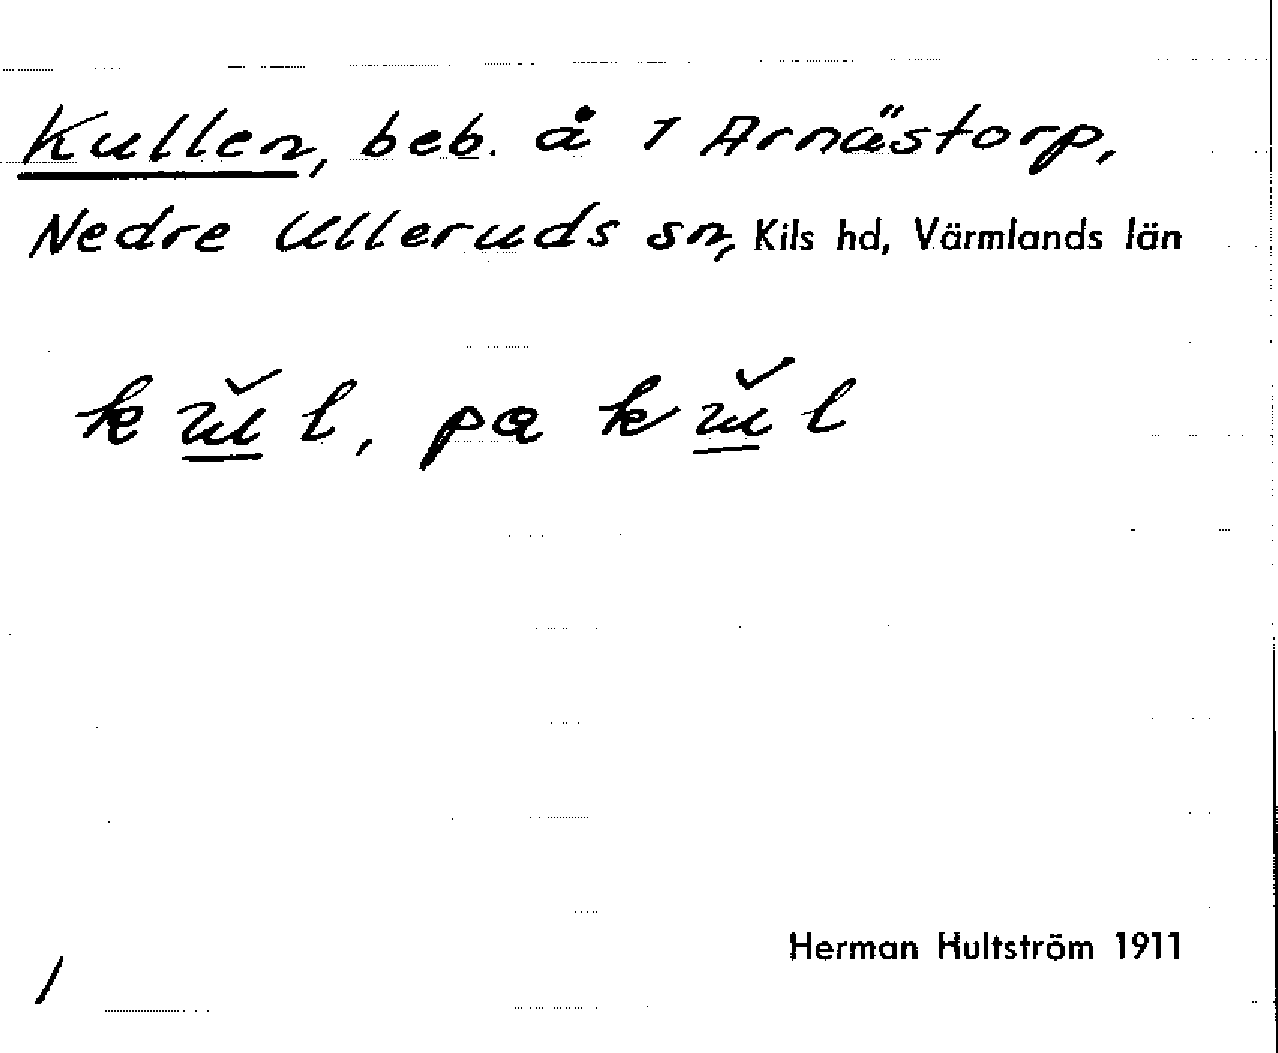 Kullen, beb. å 1 Arnästorp,
Nedre Ulleruds sn, Kils hd, Värmlands län
Herman Hultström 1911
/